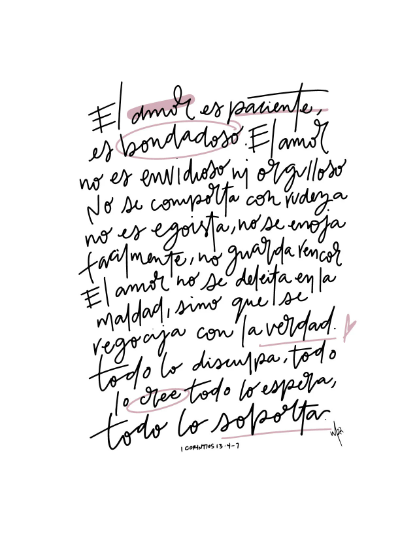 El amor es paciente,
es bondadoso. El amor
no es envidioso ni orgulloso
No se comporta con rudeza
no es egoista, no se enoja
facilmente, no guarda rencor
El amor no se deleita en la
maldad, sino que se
regocija con la verdad.
todo lo disculpa, todo
lo cree todo lo espera,
todo lo soporta.
1 CORINTIOS 13:4-7